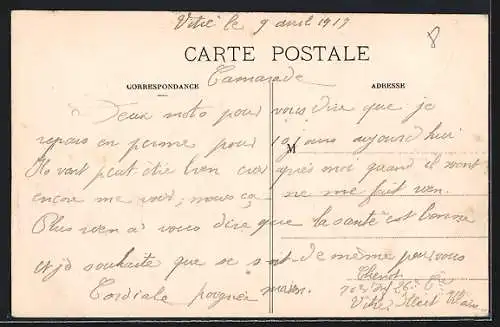 Vitré le 9 avril 1917
8
CARTE POSTALE
Camarade
CORRESPONDANCE
ADRESSE
Deux mots pour vous dire que je
repars en perme pour 10 jours aujourd'hui
M
Ils vont peut être bien crier après moi quand il vont
encore me voir, mais ça ne me fait rien.
Plus rien à vous dire que la santé est bonne
et je souhaite que se soit de même pour vous
Cordiale poignée main.
Vitré, Ille et